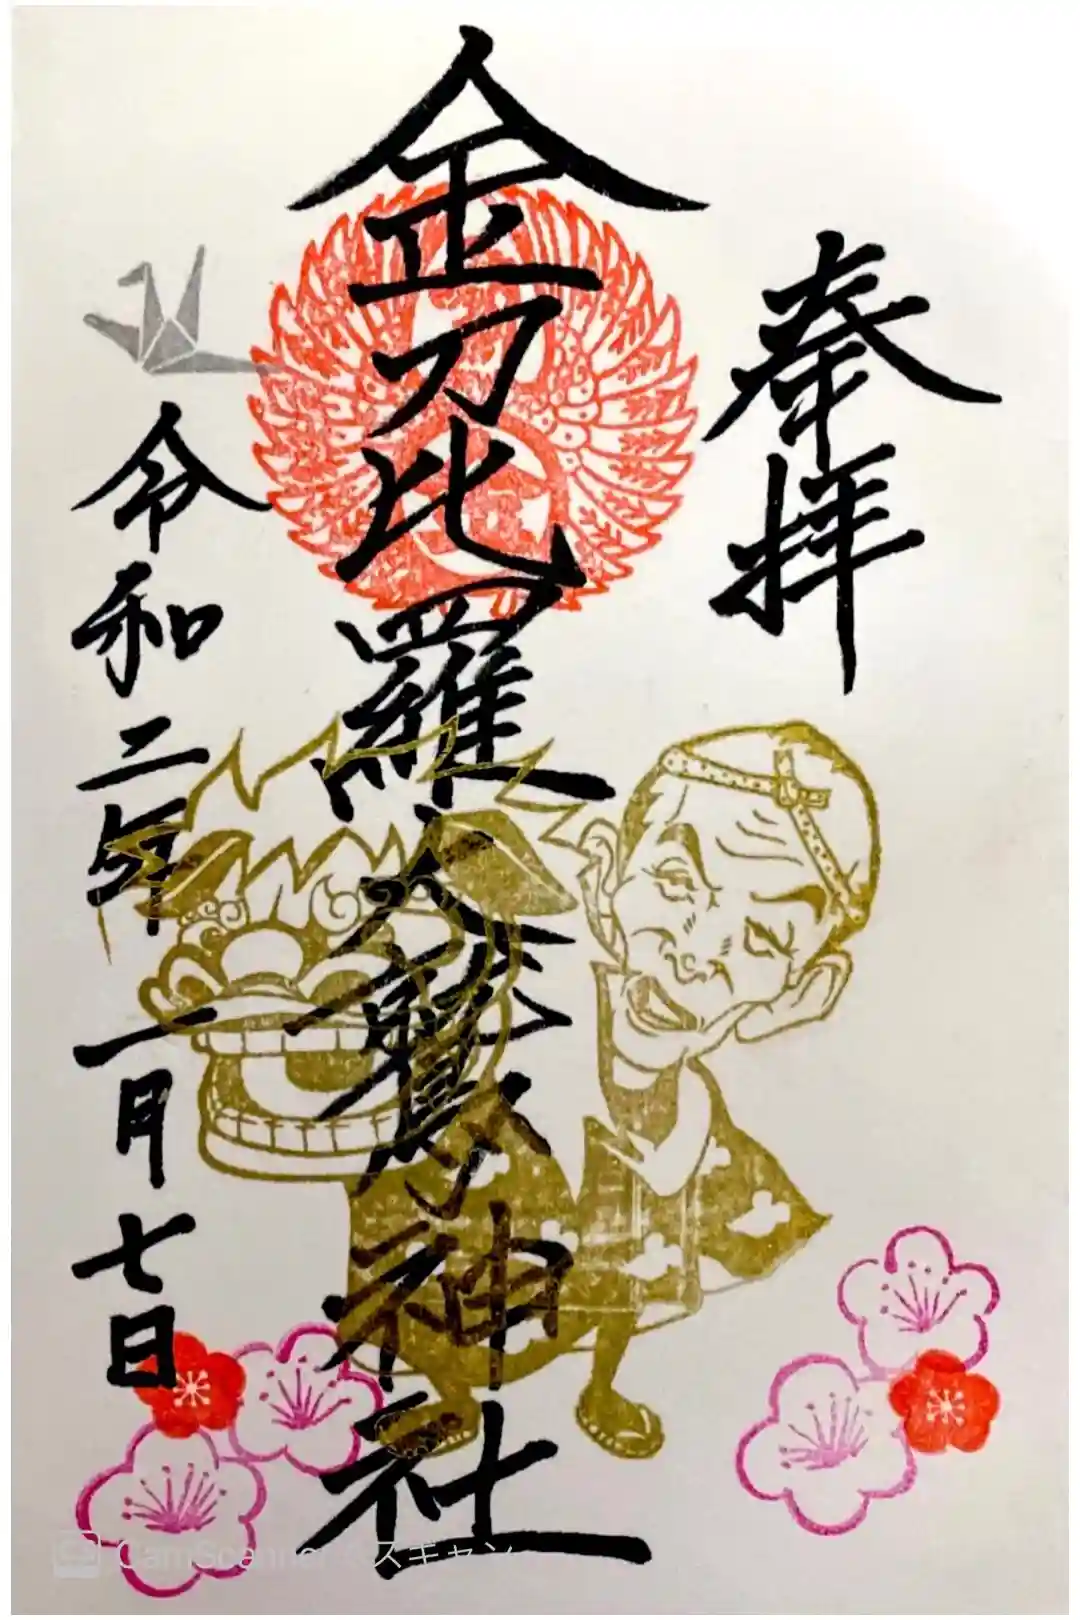 奉拝
金刀比羅大鷲神社
令和二年二月七日
CamScannerでスキャン